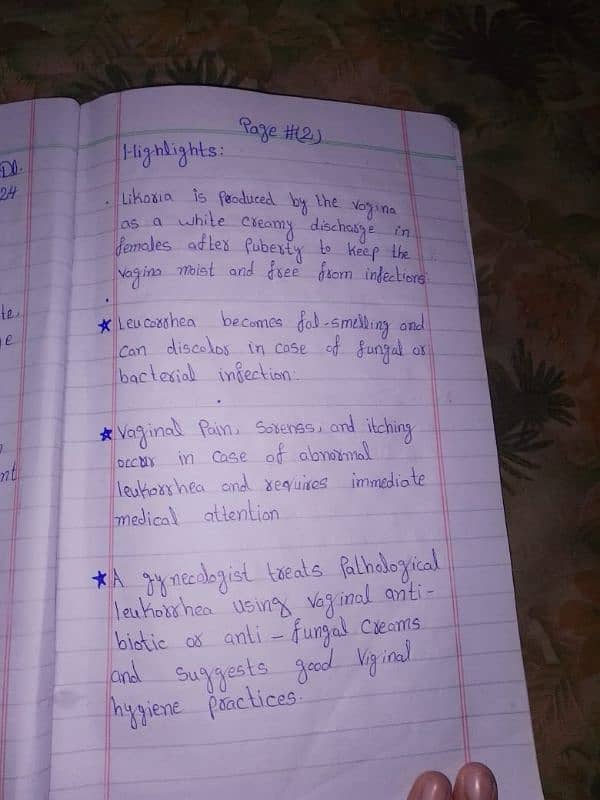 Page #(2)
Highlights:
. Likoria is produced by the vagina
as a white creamy discharge in
females after puberty to keep the
vagina moist and free from infections.
★ Leucorrhea becomes fol-smelling and
can discolor in case of fungal or
bacterial infection.
★ Vaginal Pain, Sorenss, and itching
occur in case of abnormal
leukorrhea and requires immediate
medical attention
★ A gynecologist treats Pathological
leukorrhea using vaginal anti-
biotic or anti-fungal creams
and suggests good Viginal
hygiene practices.
24